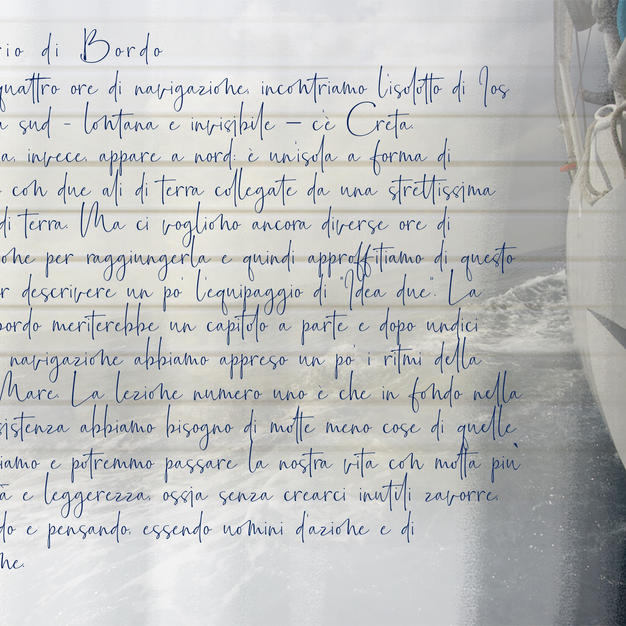 rio di Bordo
quattro ore di navigazione, incontriamo l'isolotto di Ios
a sud - lontana e invisibile – c'è Creta.
a, invece, appare a nord: è un'isola a forma di
con due ali di terra collegate da una strettissima
di terra. Ma ci vogliono ancora diverse ore di
one per raggiungerla e quindi approffitiamo di questo
r descrivere un po' l'equipaggio di "Idea due". La
bordo meriterebbe un capitolo a parte e dopo undici
navigazione abbiamo appreso un po' i ritmi della
Mare. La lezione numero uno è che in fondo nella
sistenza abbiamo bisogno di molte meno cose di quelle
iamo e potremmo passare la nostra vita con molta più
à e leggerezza, ossia senza crearci inutili zavorre.
do e pensando, essendo uomini d'azione e di
ne.